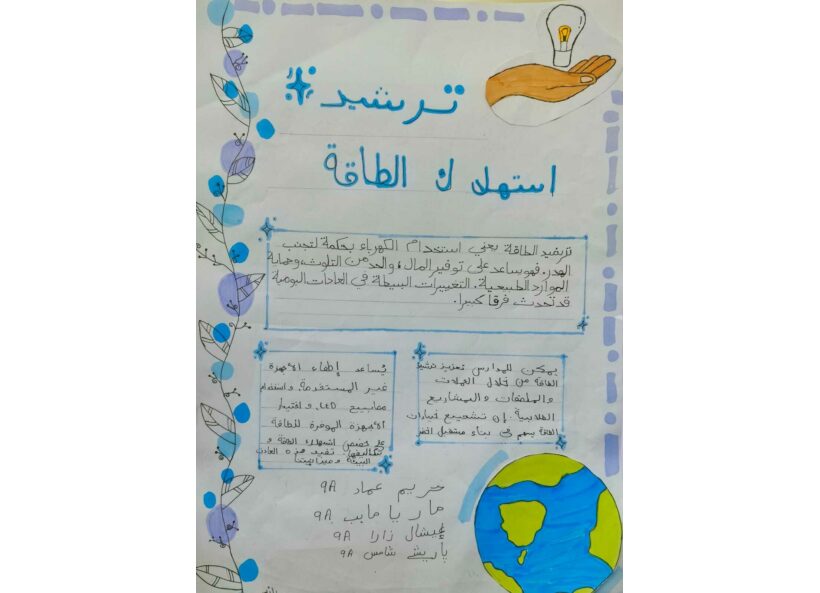 ترشيد
استهلاك الطاقة
ترشيد الطاقة يعني استخدام الكهرباء بحكمة لتجنب
الهدر. فهو يساعد على توفير المال، والحد من التلوث، وحماية
الموارد الطبيعية. التغييرات البسيطة في العادات اليومية
قد تحدث فرقا كبيرا.
يمكن للمدارس تعزيز ترشيد
الطاقة من خلال الحملات
والملصقات والمشاريع
الطلابية. إن تشجيع خيارات
الطاقة يسهم في بناء مستقبل أخضر
يُساعد إطفاء الأجهزة
غير المستخدمة، واستخدام
مصابيح LED، و اختيار
الأجهزة الموفرة للطاقة
على خفض استهلاك الطاقة و
تكاليفها. تفيد هذه العادات
البيئة و ميزانيتنا
مريم عماد 9A
ماريا مايب 9A
إيشال زارا 9A
پاريشے شامس 9A